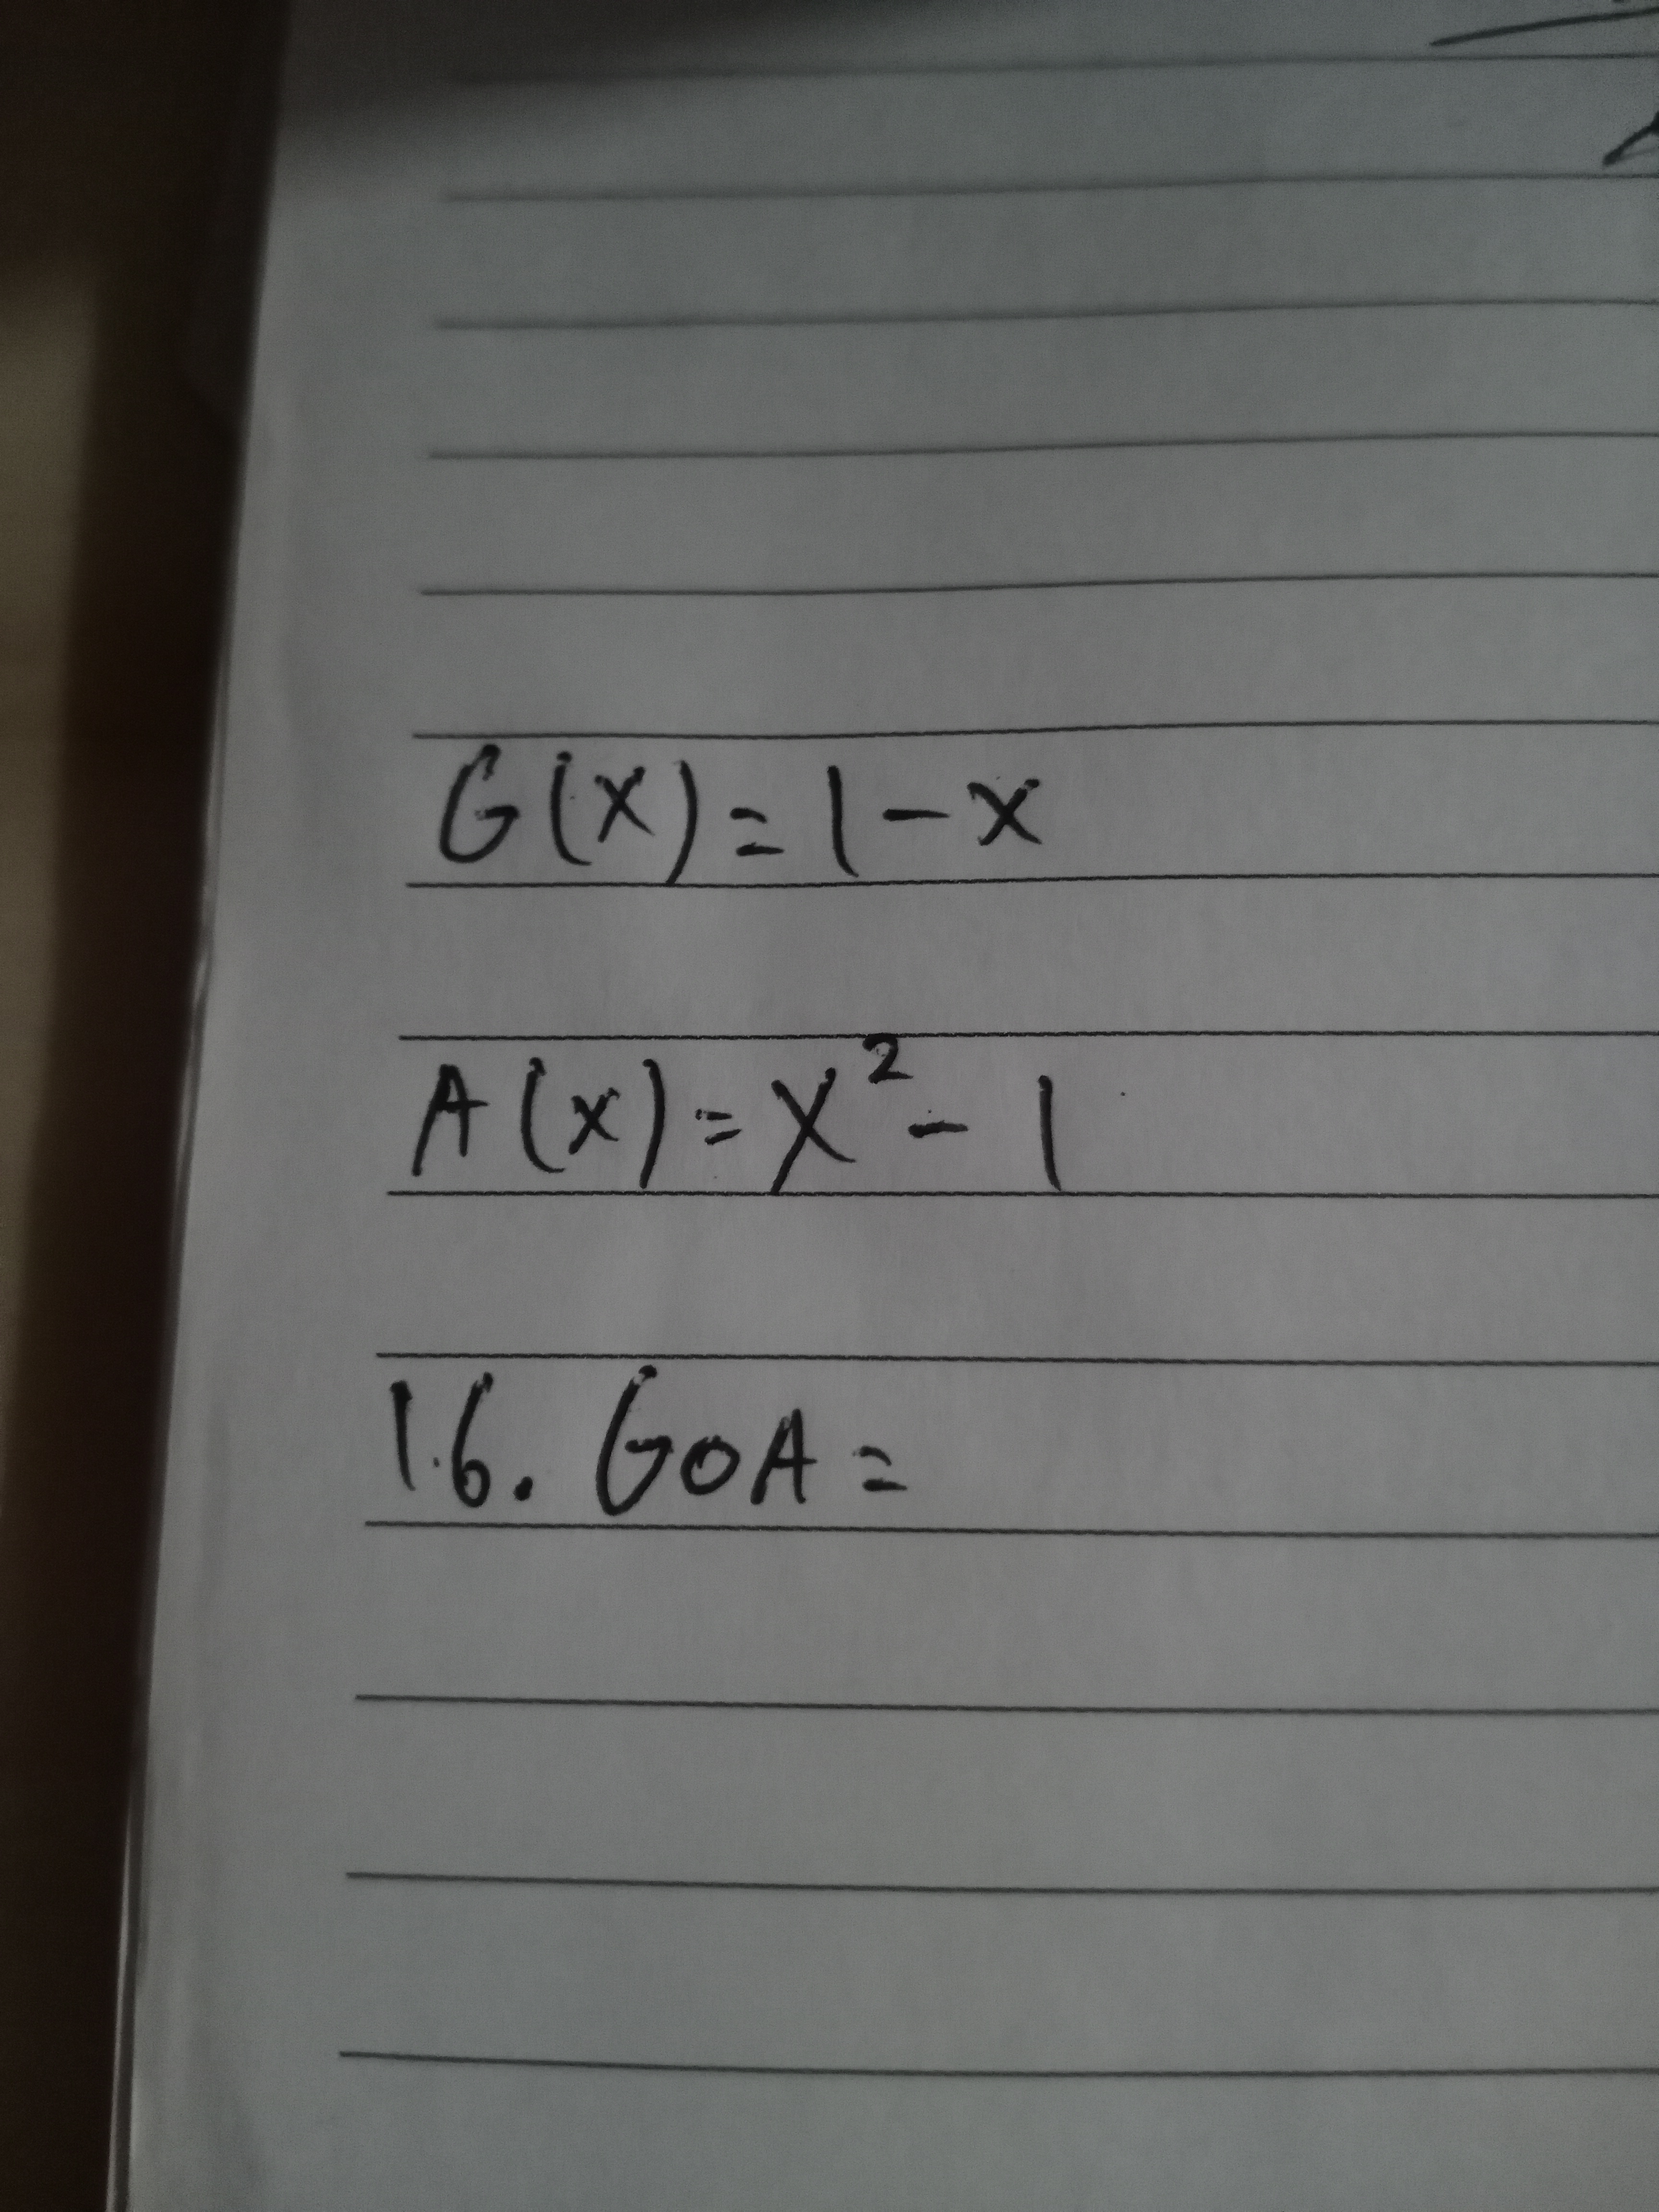 G(x)=1-x
A(x)=x²-1
1.6. GoA=